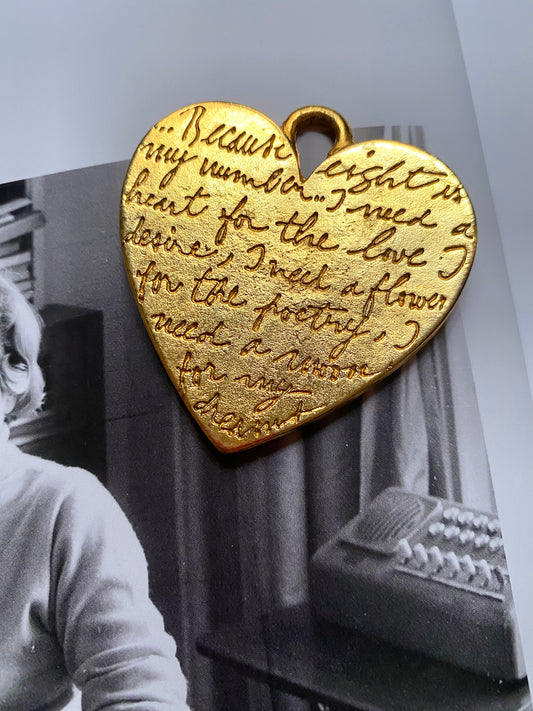 "Because eight is
my number" I need a
heart for the love I
desire, I need a flower
for the poetry, I
need a moon
for my
dreams